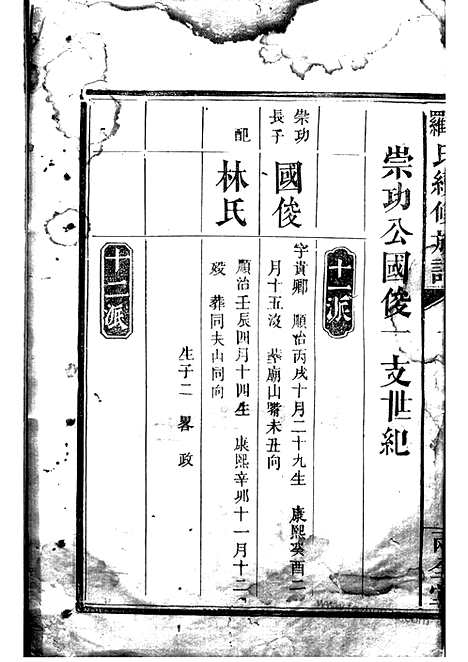 羅氏續修族譜
崇功公國俊一支世紀
十一派
崇功
長子
國俊
字貴卿 順治丙戌十月二十九生 康熙癸酉二
月十五沒 葬廟山嘴未丑向
配
林氏
順治壬辰四月十四生 康熙辛卯十一月十二
歿 葬同夫山同向
生子二 畧 政
十二派